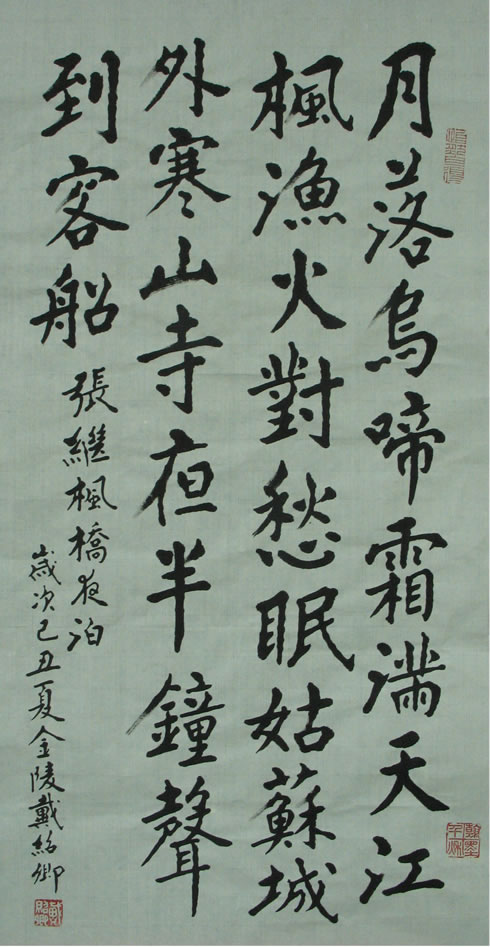 月落烏啼霜滿天江
楓漁火對愁眠姑蘇城
外寒山寺夜半鐘聲
到客船
張繼楓橋夜泊
歲次己丑夏金陵戴紹卿